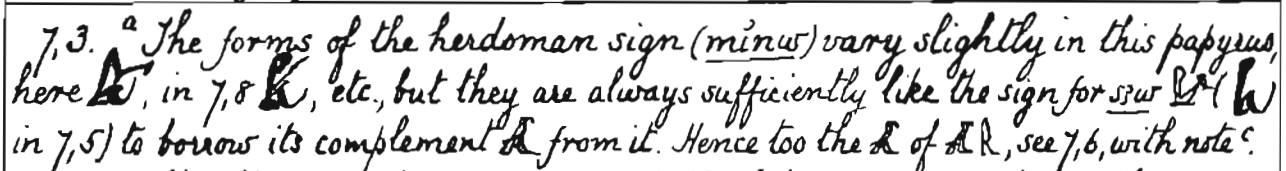 7,3. a The forms of the herdsman sign (mínıw) vary slightly in this papyrus,
here , in 7,8 , etc., but they are always sufficiently like the sign for sꜣw (
in 7,5) to borrow its complement 𓄿 from it. Hence too the 𓄿 of 𓄿, see 7,6, with note c.